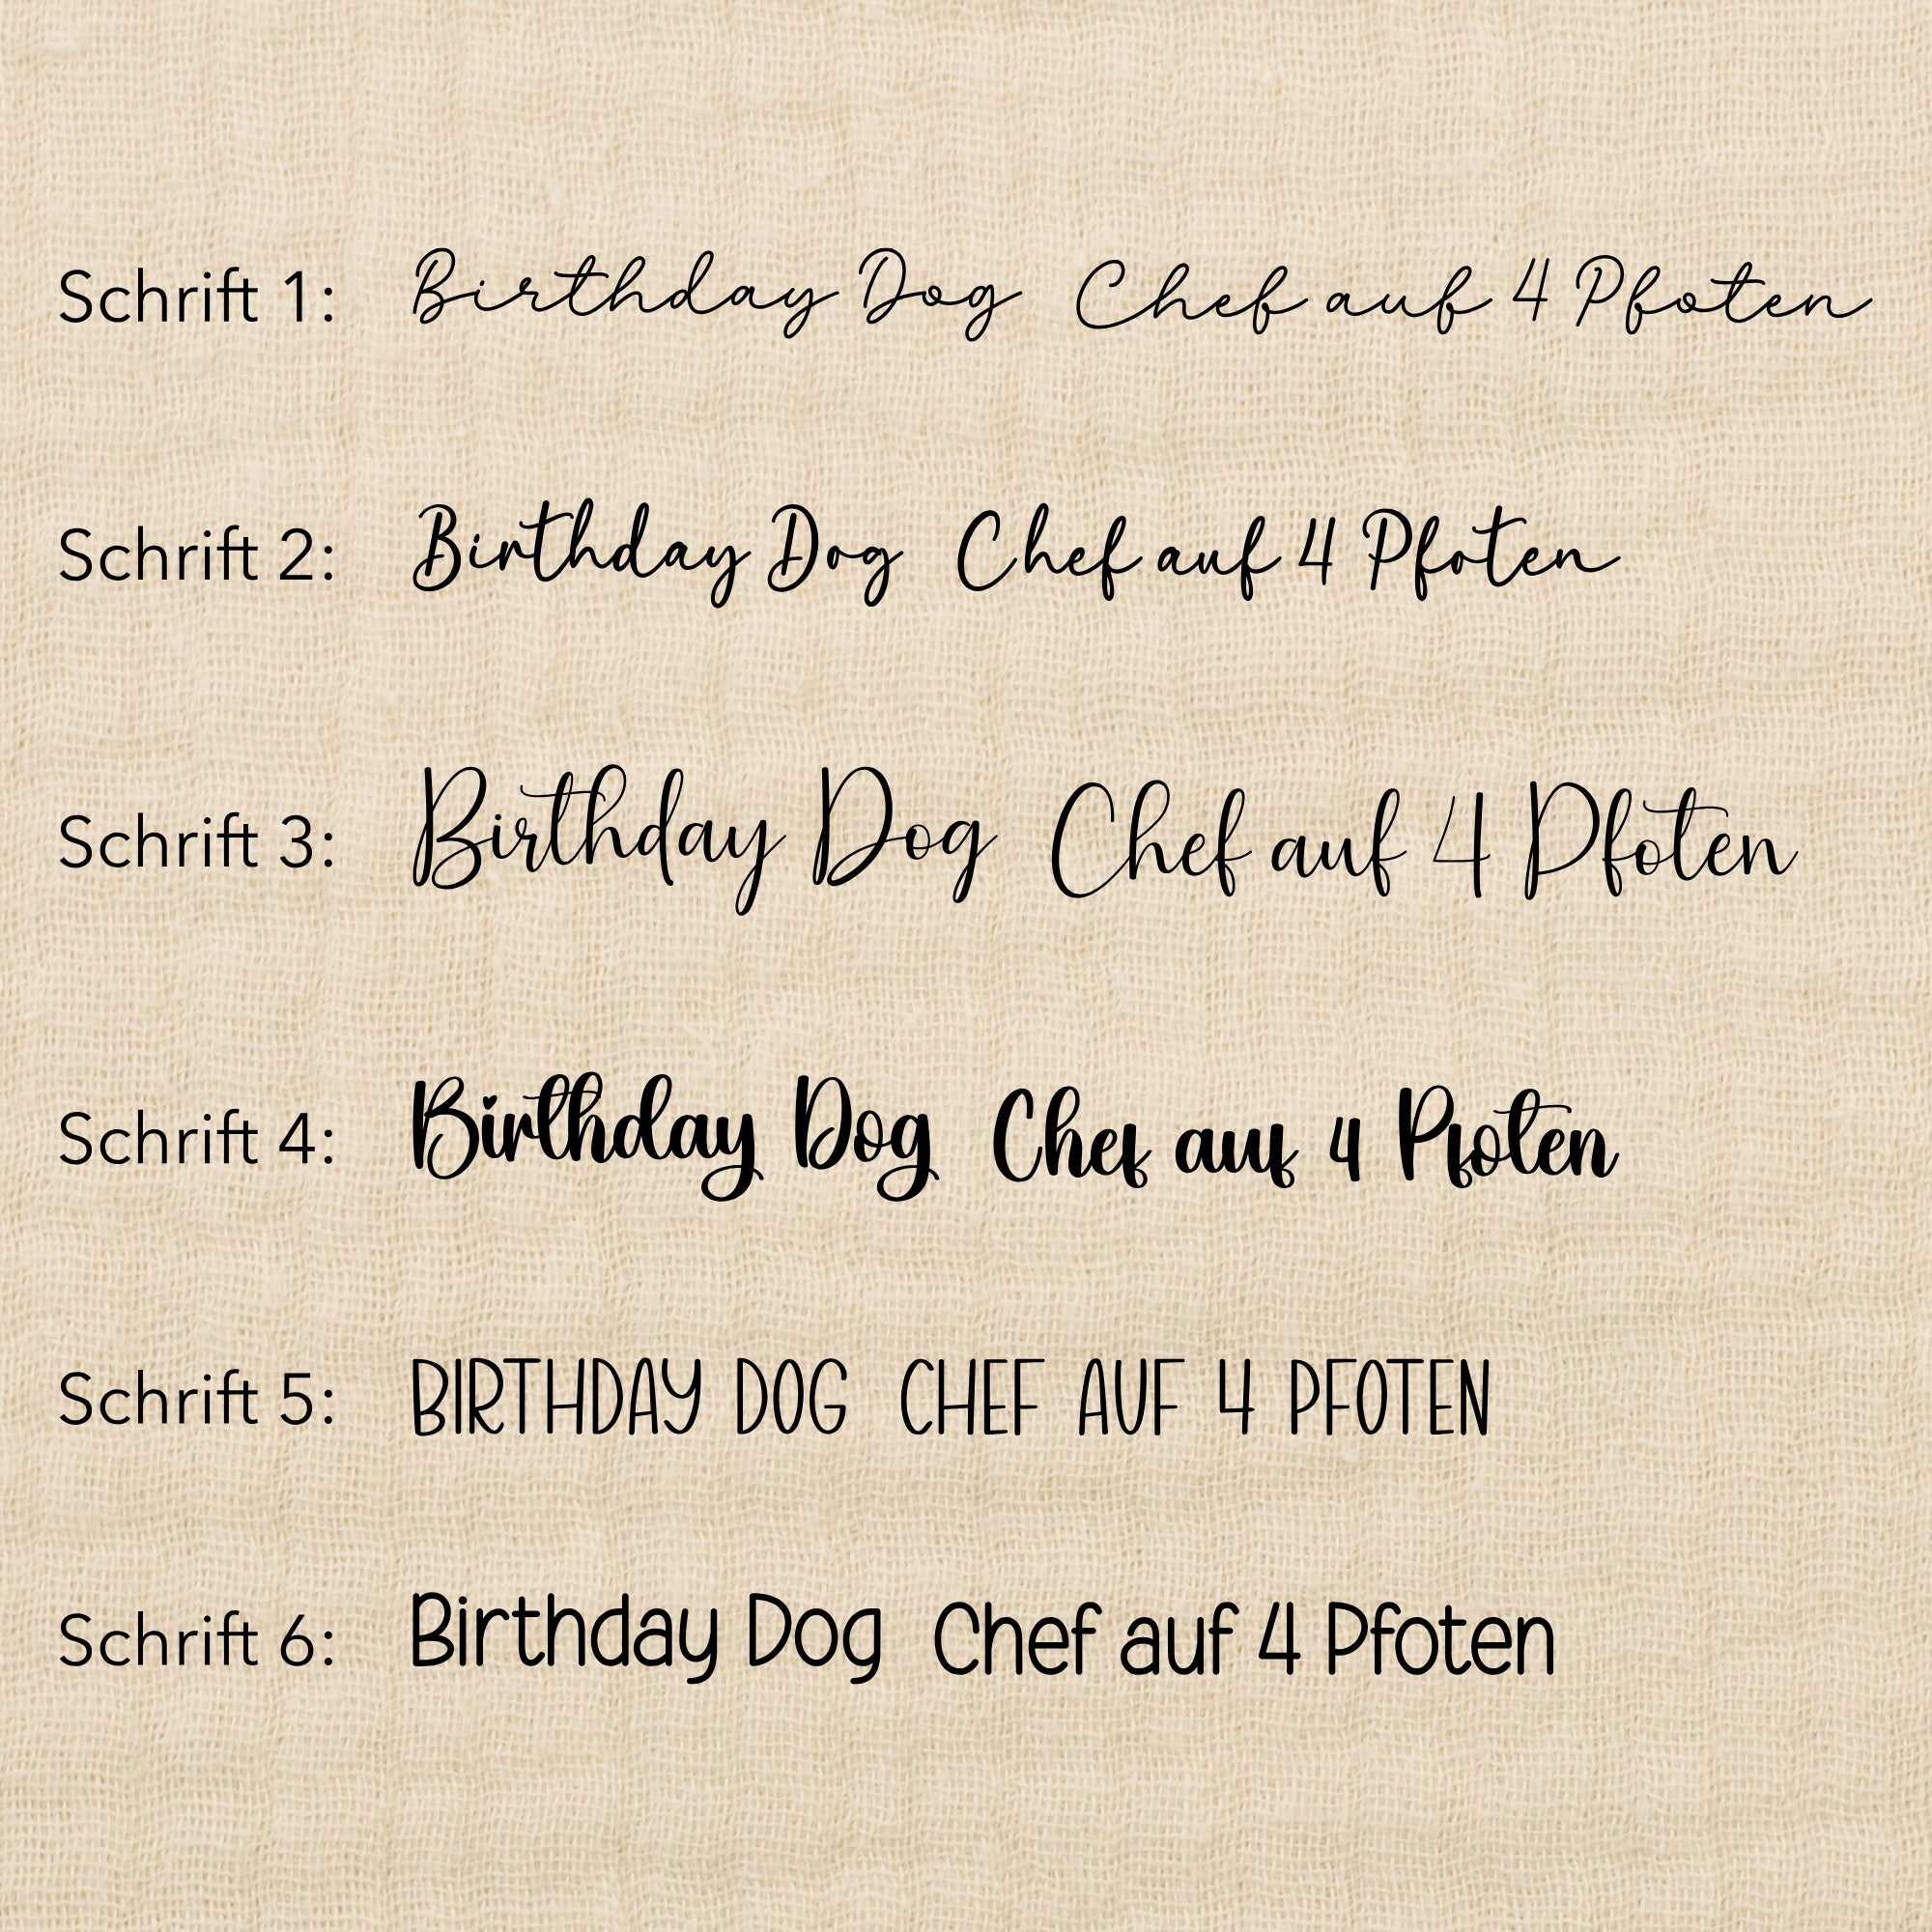 Schrift 1: Birthday Dog Chef auf 4 Pfoten
Schrift 2: Birthday Dog Chef auf 4 Pfoten
Schrift 3: Birthday Dog Chef auf 4 Pfoten
Schrift 4: Birthday Dog Chef auf 4 Pfoten
Schrift 5: BIRTHDAY DOG CHEF AUF 4 PFOTEN
Schrift 6: Birthday Dog Chef auf 4 Pfoten